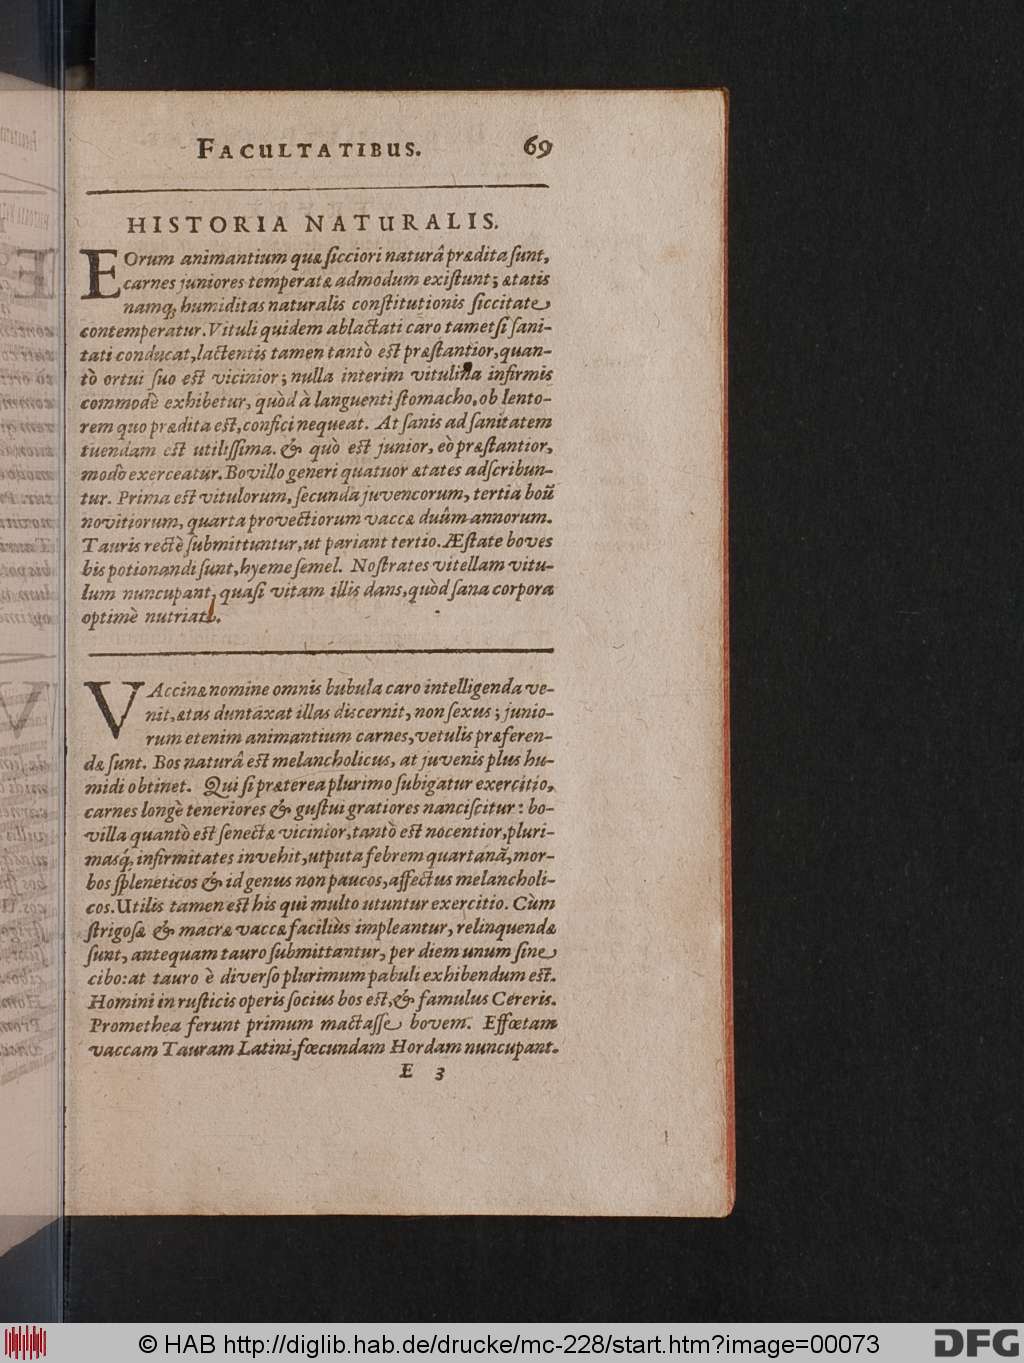 FACULTATIBUS. 69
HISTORIA NATURALIS.
EOrum animantium quæ ſicciori naturâ prædita ſunt,
carnes juniores temperatæ admodum exiſtunt; ætatis
namq; humiditas naturalis conſtitutionis ſiccitate
contemperatur. Vituli quidem ablactati caro tametſi ſani-
tati conducat, lactentis tamen tantò eſt præſtantior, quan-
tò ortui ſuo eſt vicinior; nulla interim vitulina infirmis
commodè exhibetur, quòd à languenti ſtomacho, ob lento-
rem quo prædita eſt, confici nequeat. At ſanis ad ſanitatem
tuendam eſt utiliſſima. & quò eſt junior, eò præſtantior,
modò exerceatur. Bovillo generi quatuor ætates adſcribun-
tur. Prima eſt vitulorum, ſecunda juvencorum, tertia boũ
novitiorum, quarta provectiorum vaccæ duûm annorum.
Tauris rectè ſubmittuntur, ut pariant tertio. Æſtate boves
bis potionandi ſunt, hyeme ſemel. Noſtrates vitellam vitu-
lum nuncupant, quaſi vitam illis dans, quòd ſana corpora
optimè nutriat.
VAccinæ nomine omnis bubula caro intelligenda ve-
nit, ætas duntaxat illas diſcernit, non ſexus; junio-
rum etenim animantium carnes, vetulis præferen-
dæ ſunt. Bos naturâ eſt melancholicus, at juvenis plus hu-
midi obtinet. Qui ſi præterea plurimo ſubigatur exercitio,
carnes longè teneriores & guſtui gratiores nanciſcitur: bo-
villa quantò eſt ſenectæ vicinior, tantò eſt nocentior, pluri-
masq́; infirmitates invehit, utputa febrem quartanã, mor-
bos ſpleneticos & id genus non paucos, affectus melancholi-
cos. Utilis tamen eſt his qui multo utuntur exercitio. Cùm
ſtrigoſæ & macræ vaccæ faciliùs impleantur, relinquendæ
ſunt, antequam tauro ſubmittantur, per diem unum ſine
cibo: at tauro è diverſo plurimum pabuli exhibendum eſt.
Homini in ruſticis operis ſocius bos eſt, & famulus Cereris.
Promethea ferunt primum mactaſſe bovem. Effœtam
vaccam Tauram Latini, fœcundam Hordam nuncupant.
E 3
© HAB http://diglib.hab.de/drucke/mc-228/start.htm?image=00073
DFG